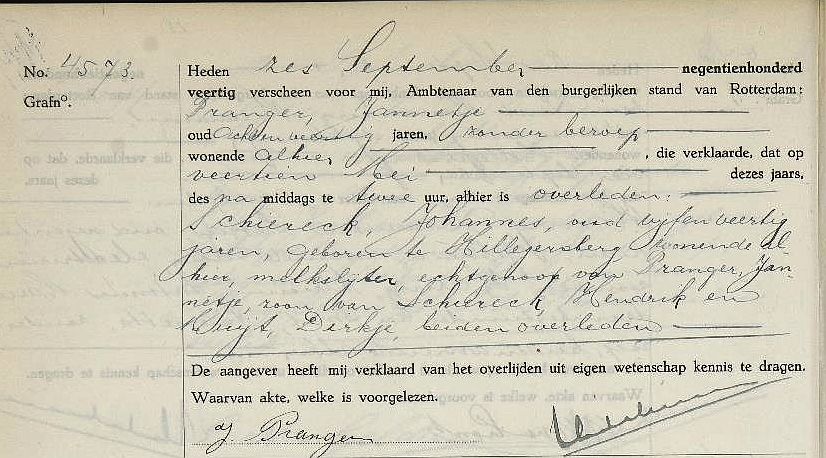 No. 4573.
Grafnº.
Heden zes September negentienhonderd
veertig verscheen voor mij, Ambtenaar van den burgerlijken stand van Rotterdam:
Pranger, Jannetje
oud achtenveertig jaren, zonder beroep
wonende alhier , die verklaarde, dat op
veertien Mei dezes jaars,
des na middags te twee uur, alhier is overleden:
Schiereck, Johannes, oud vijfenveertig
jaren, geboren te Hillegersberg wonende al-
hier, melkslijter, echtgenoot van Pranger, Jan-
netje, zoon van Schiereck, Hendrik en
Kuijt, Dirkje, beiden overleden
De aangever heeft mij verklaard van het overlijden uit eigen wetenschap kennis te dragen.
Waarvan akte, welke is voorgelezen.
J. Pranger